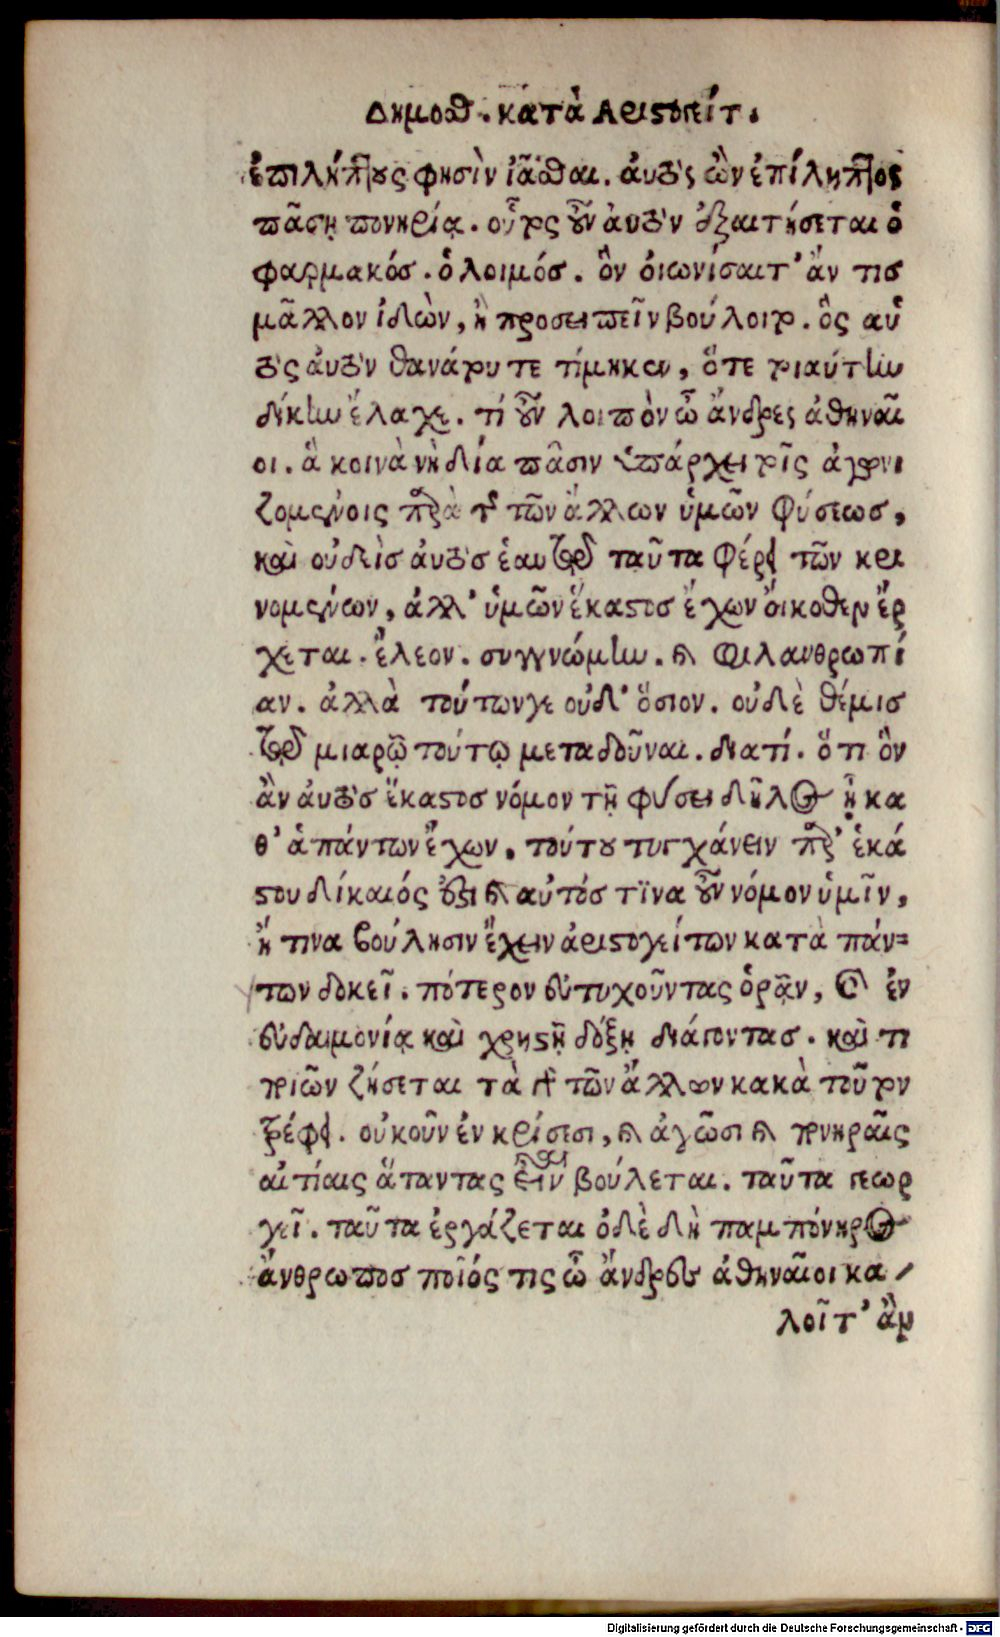 Δημοσθ. κατὰ Ἀριστογείτ.
ἐπιλήπτους φησὶν ἰᾶσθαι. ἀυτὸς ὢν ἐπίληπτος
πᾶσῃ πονηρίᾳ. οὗτος οὖν ἀυτὸν ἐξαιτήσεται ὁ
φαρμακός. ὁ λοιμός. ὃν ὀιωνίσαιτ’ ἄν τις
μᾶλλον ἰδὼν, ἢ προσειπεῖν βούλοιτο. ὃς αὐ
τὸς ἁυτὸν θανάτου τε τίμηκεν, ὅτε τοιαύτην
δίκην ἔλαχε. τί οὖν λοιπὸν ὦ ἄνδρες ἀθηναῖ
οι. ἃ κοινὰ νὴ δία πᾶσιν ὑπάρχει τοῖς ἀγωνι
ζομένοις παρὰ τῆς τῶν ἄλλων ὑμῶν φύσεως,
καὶ οὐδεὶς ἀυτὸς ἑαυτῷ ταῦτα φέρει τῶν κρι
νομένων, ἀλλ’ ὑμῶν ἕκαστος ἔχων ὄικοθεν ἔρ
χεται. ἔλεον. συγγνώμην. καὶ φιλανθρωπί
αν. ἀλλὰ τούτων γε οὐδ’ ὅσιον. οὐδὲ θέμις
τῷ μιαρῷ τούτῳ μεταδοῦναι. διατί. ὅτι ὃν
ἂν ἀυτὸς ἕκαστος νόμον τῇ φύσει δῆλος ᾖ κα
θ’ ἁπάντων ἔχων. τούτου τυγχάνειν παρ’ ἑκά
στου δίκαιός ἐστι καὶ αὐτός τίνα οὖν νόμον ὑμῖν,
ἢ τίνα βούλησιν ἔχειν ἀριστογείτων κατὰ πάν=
των δοκεῖ. πότερον εὐτυχοῦντας ὁρᾶν, καὶ ἐν
εὐδαιμονίᾳ καὶ χρηστῇ δόξῃ διάγοντας. καὶ τι
ποιῶν ζήσεται τὰ γὰρ τῶν ἄλλων κακὰ τοῦτον
τρέφει. οὐκοῦν ἐν κρίσεσι, καὶ ἀγῶσι καὶ πονηραῖς
αἰτίαις ἅπαντας εἶναι βούλεται. ταῦτα γεωρ
γεῖ. ταῦτα ἐργάζεται ὁδὲ δὴ παμπόνηρος
ἄνθρωπος ποῖός τις ὦ ἄνδρες ἀθηναῖοι κα /
λοῖτ’ ἂν
Digitalisierung gefördert durch die Deutsche Forschungsgemeinschaft - DFG